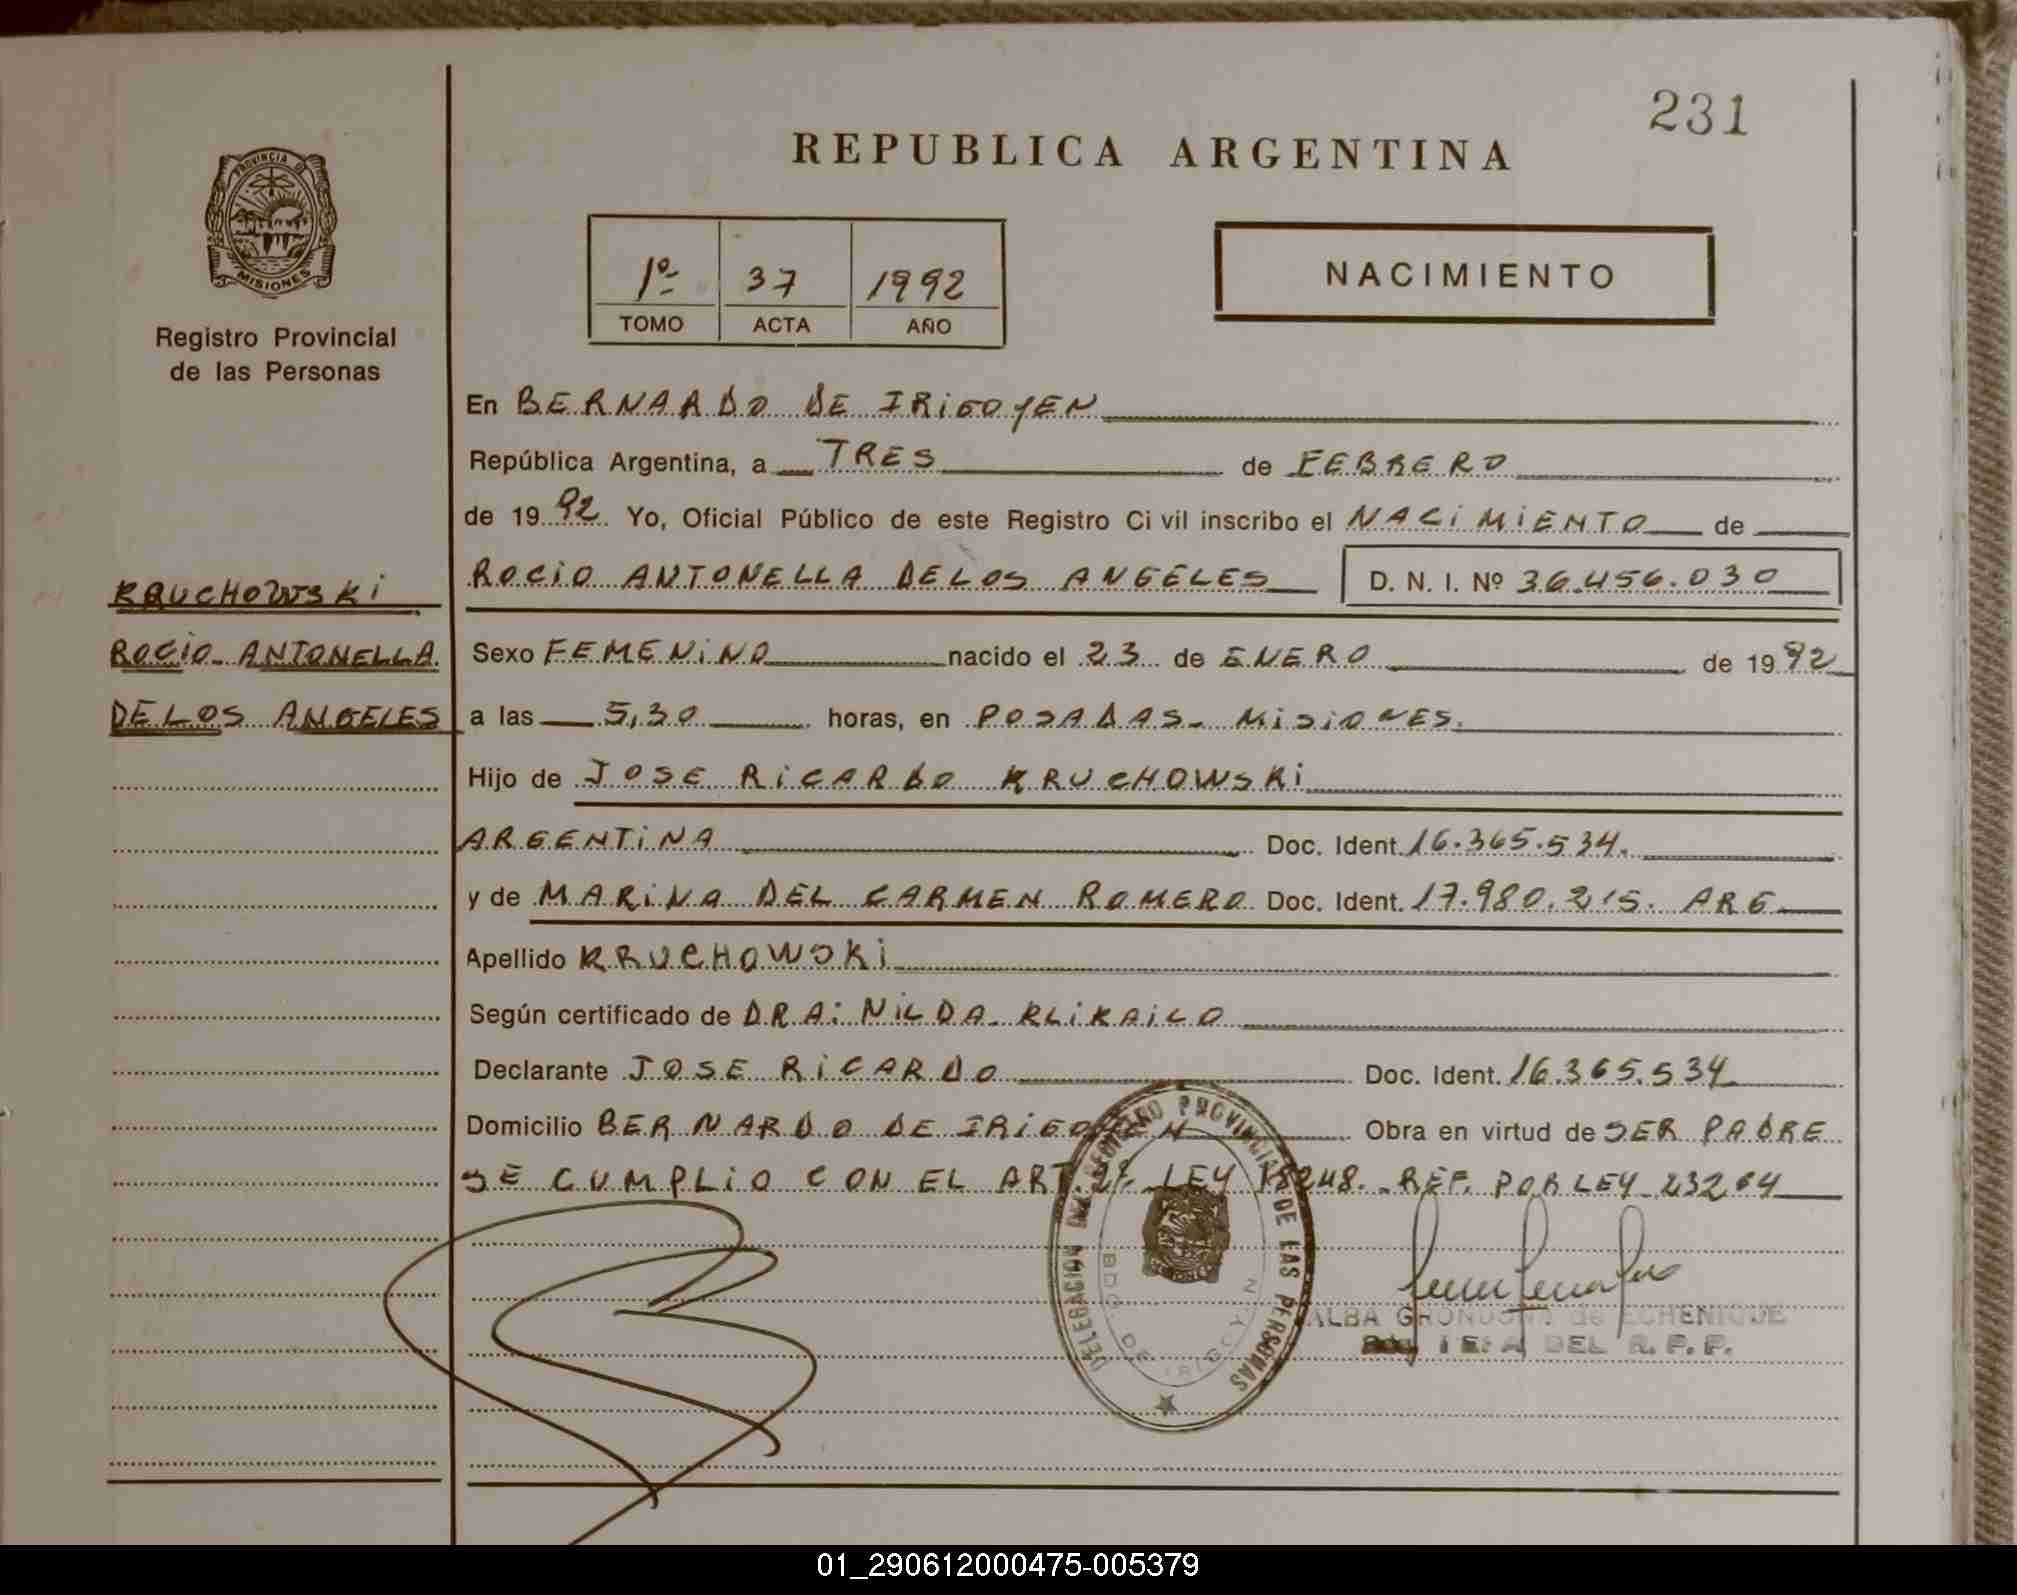 231
REPUBLICA ARGENTINA
PROVINCIA D
MISIONES
Registro Provincial
de las Personas
1º 37 1992
TOMO ACTA AÑO
NACIMIENTO
En BERNARDO DE IRIGOYEN
República Argentina, a TRES de FEBRERO
de 1992 Yo, Oficial Público de este Registro Ci vil inscribo el NACIMIENTO de
ROCIO ANTONELLA DE LOS ANGELES D. N. I. Nº 36.456.030
KRUCHOWSKI
ROCIO ANTONELLA
DE LOS ANGELES
Sexo FEMENINO nacido el 23 de ENERO de 1992
a las 5,30 horas, en POSADAS - MISIONES.
Hijo de JOSE RICARDO KRUCHOWSKI
ARGENTINA Doc. Ident. 16.365.534.
y de MARINA DEL CARMEN ROMERO Doc. Ident. 17.980.215. ARG
Apellido KRUCHOWSKI
Según certificado de DRA: NILDA KLIKAILO
Declarante JOSE RICARDO Doc. Ident. 16.365.534
Domicilio BERNARDO DE IRIGOYEN Obra en virtud de SER PADRE
SE CUMPLIO CON EL ART. 2º. LEY 18248. REF. POR LEY 23264
DELEGACION DEL REGISTRO PROVINCIAL DE LAS PERSONAS
BDO. DE IRIGOYEN
ALBA GRONDONA de ECHENIQUE
DEL R. P. P.
01_290612000475-005379